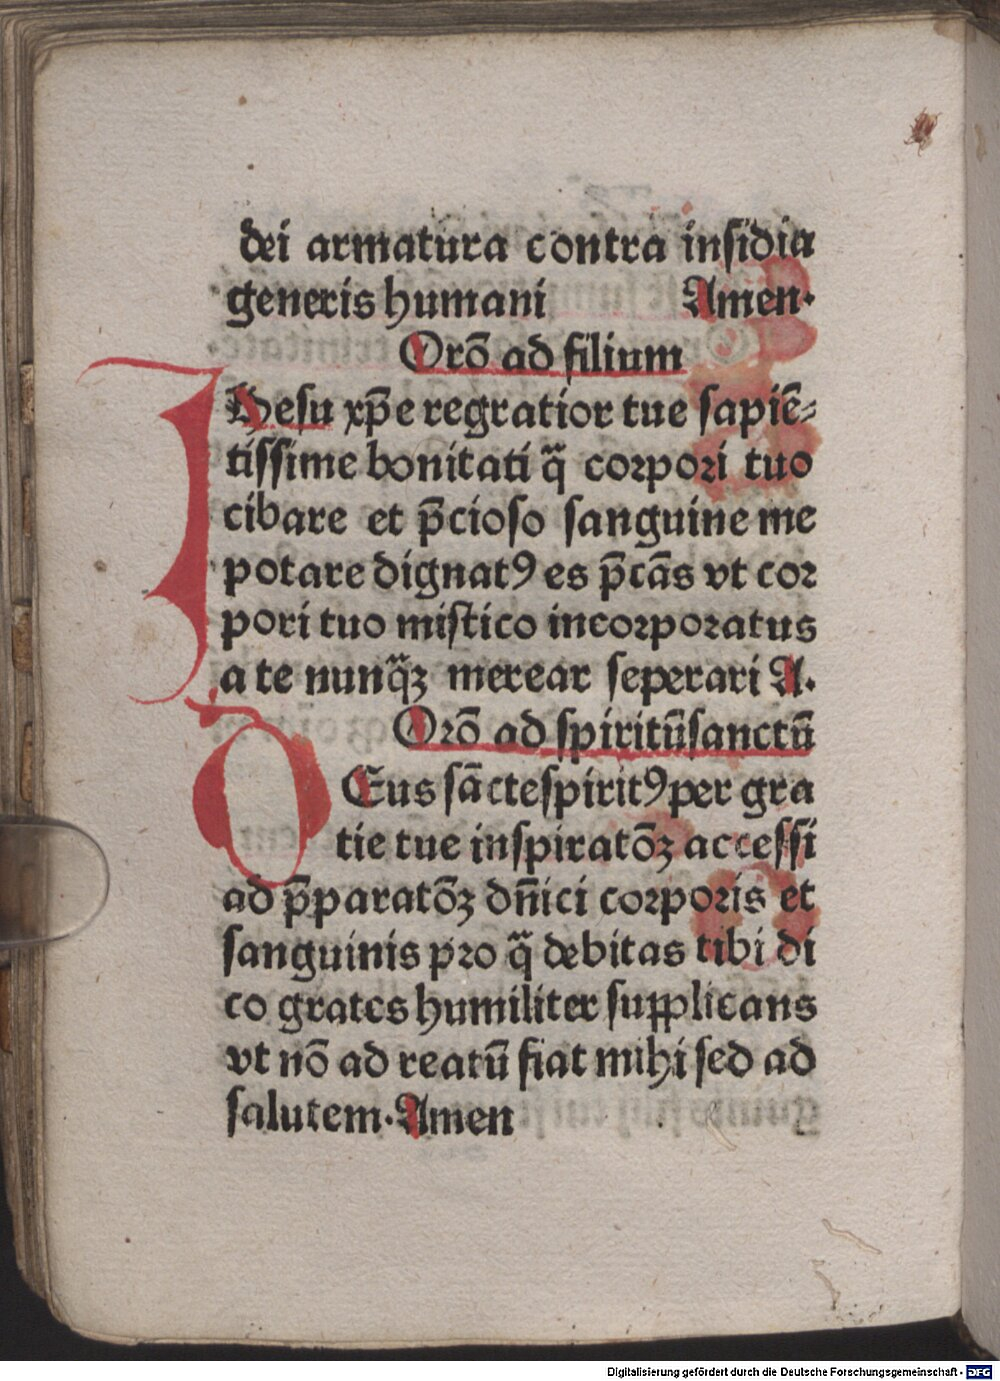 dei armatura contra insidia
generis humani Amen.
Orō ad filium
IHesu xp̄e regratior tue sapiē⸗
tissime bonitati q̄ corpori tuo
cibare et p̄cioso sanguine me
potare dignatꝰ es p̄cās vt cor
pori tuo mistico incorporatus
a te nunq̄ꝫ merear seperari A.
Orō ad spiritūsanctū
DEus sāctespiritꝰ per gra
tie tue inspiratōꝫ accessi
ad p̄paratōꝫ dn̄ici corporis et
sanguinis pro q̄ debitas tibi di
co grates humiliter supplicans
vt nō ad reatū fiat mihi sed ad
salutem. Amen
Digitalisierung gefördert durch die Deutsche Forschungsgemeinschaft - DFG